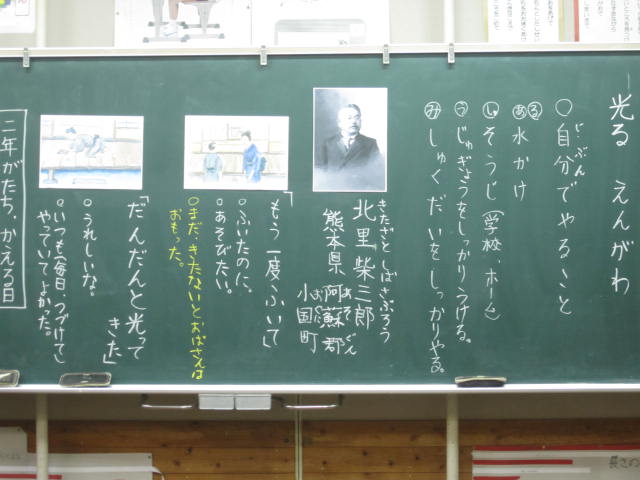 光る えんがわ
○自分でやること
じぶん
ある 水かけ
し そうじ(学校、ホーム)
う じゅぎょうをしっかりうける。
み しゅくだいをしっかりやる。
きたざとしばさぶろう
北里柴三郎
熊本県 阿蘇郡
あそぐん
小国町
おぐに
「もう一度ふいて」
○ふいたのに、
○あそびたい。
○まだ、きたないとおばさんは
おもった。
「だんだんと光って
きた」
○うれしいな。
○いつも(毎日、つづけて)
やっていてよかった。
二年がたち、かえる日
長さの